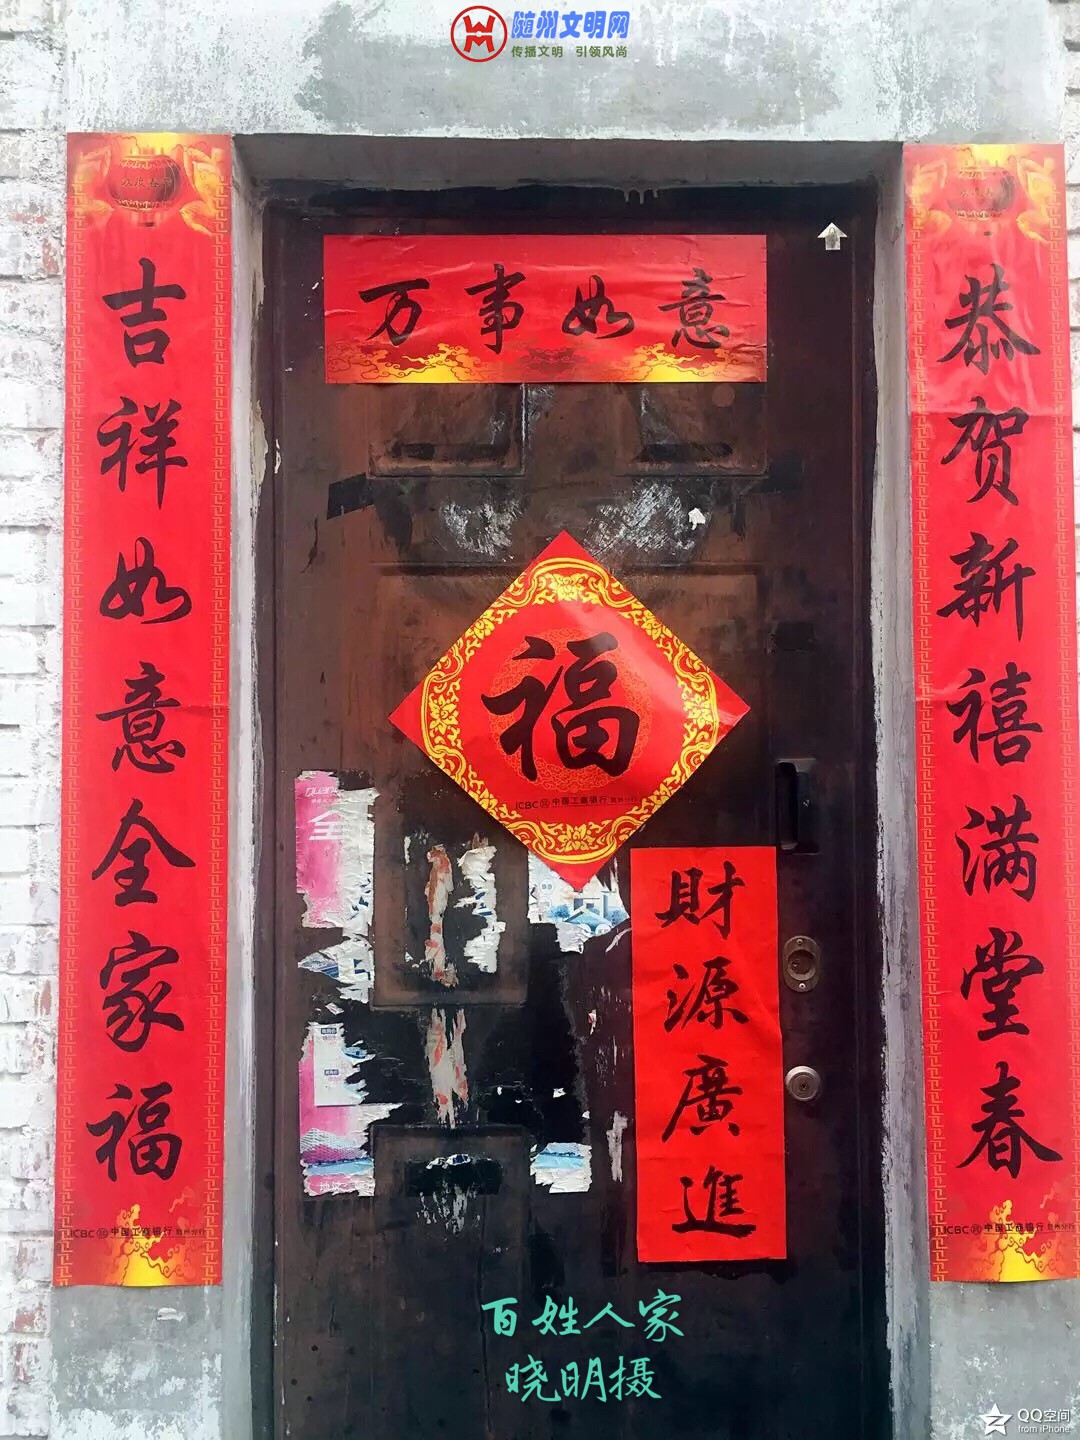 随州文明网
传播文明 引领风尚
万事如意
恭贺新禧满堂春
吉祥如意全家福
福
ICBC 中国工商银行
財源廣進
ICBC 中国工商银行
ICBC 中国工商银行
百姓人家
晓明摄
QQ空间
from iPhone